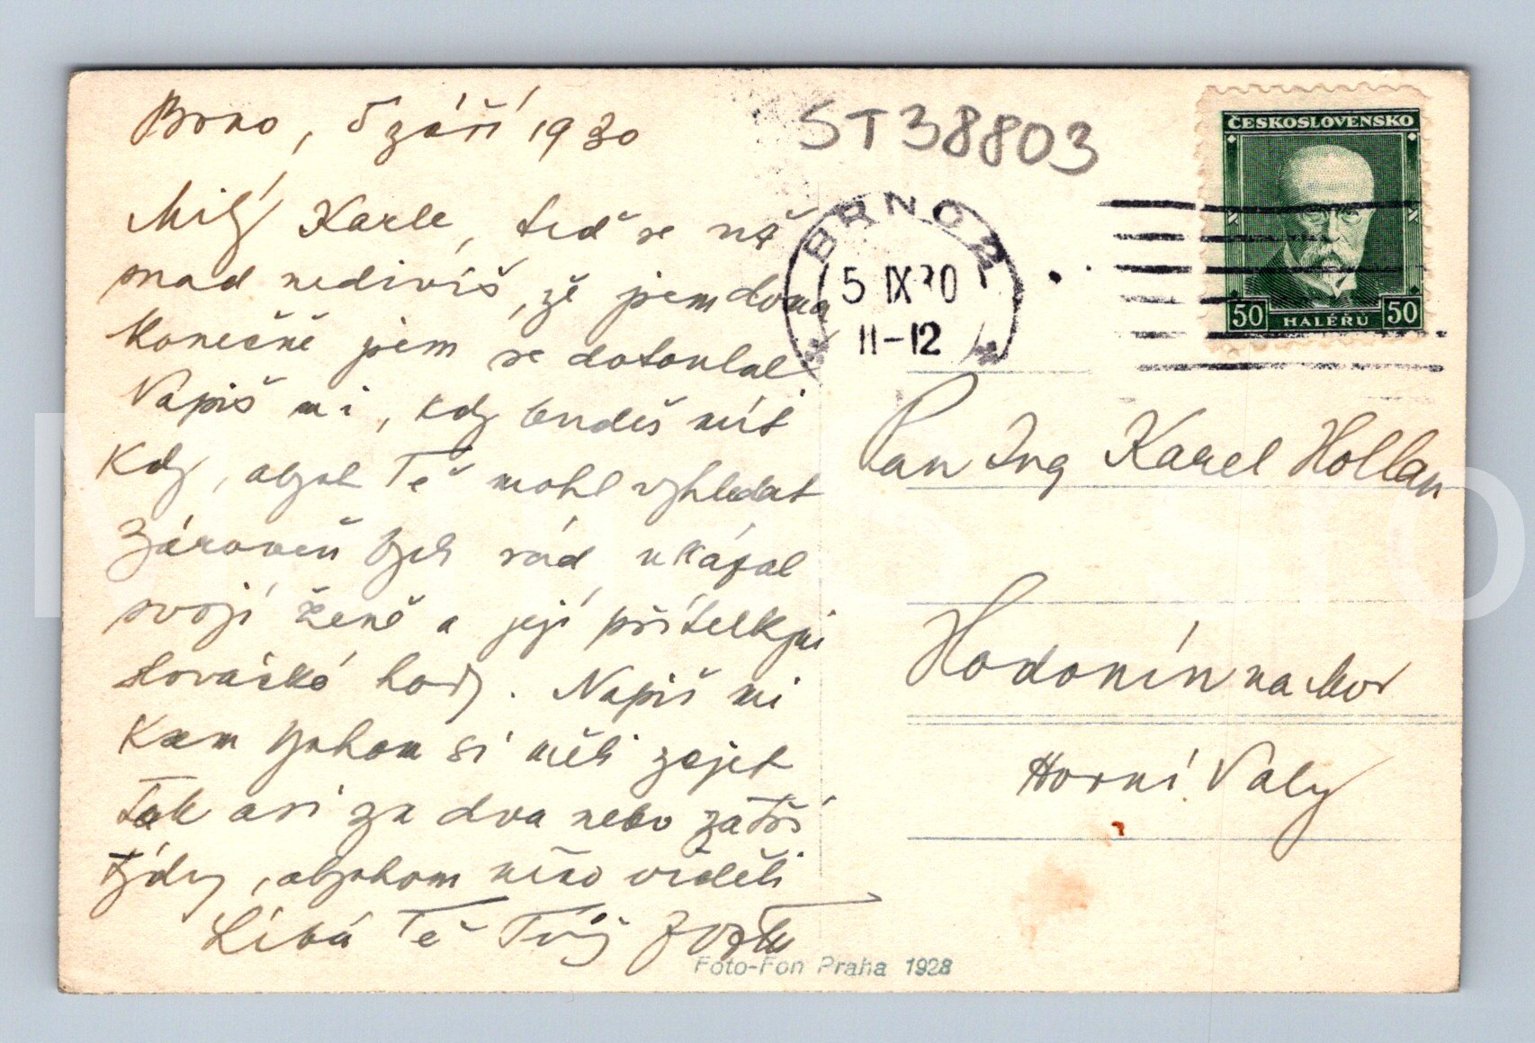 Brno, 5 září 1930
Milý Karle, teď se už
snad nedivíš, že jsem doma
Konečně jsem se dotoulal
Napiš mi, kdy budeš mít
kdy, abych Tě mohl vyhledat
Zároveň bych rád ukázal
svojí ženě a její přítelkyni
slovácké hody. Napiš mi
kam bychom si měli zajet
tak asi za dva nebo za tři
týdny, abychom něco viděli
Líbá Tě Tvůj
Foto-Fon Praha 1928
ST38803
BRNO 2
5 IX 30
11-12
ČESKOSLOVENSKO
50 HALÉŘŮ 50
Pan Ing Karel Hollan
Hodonín na Mor
Horní Valy